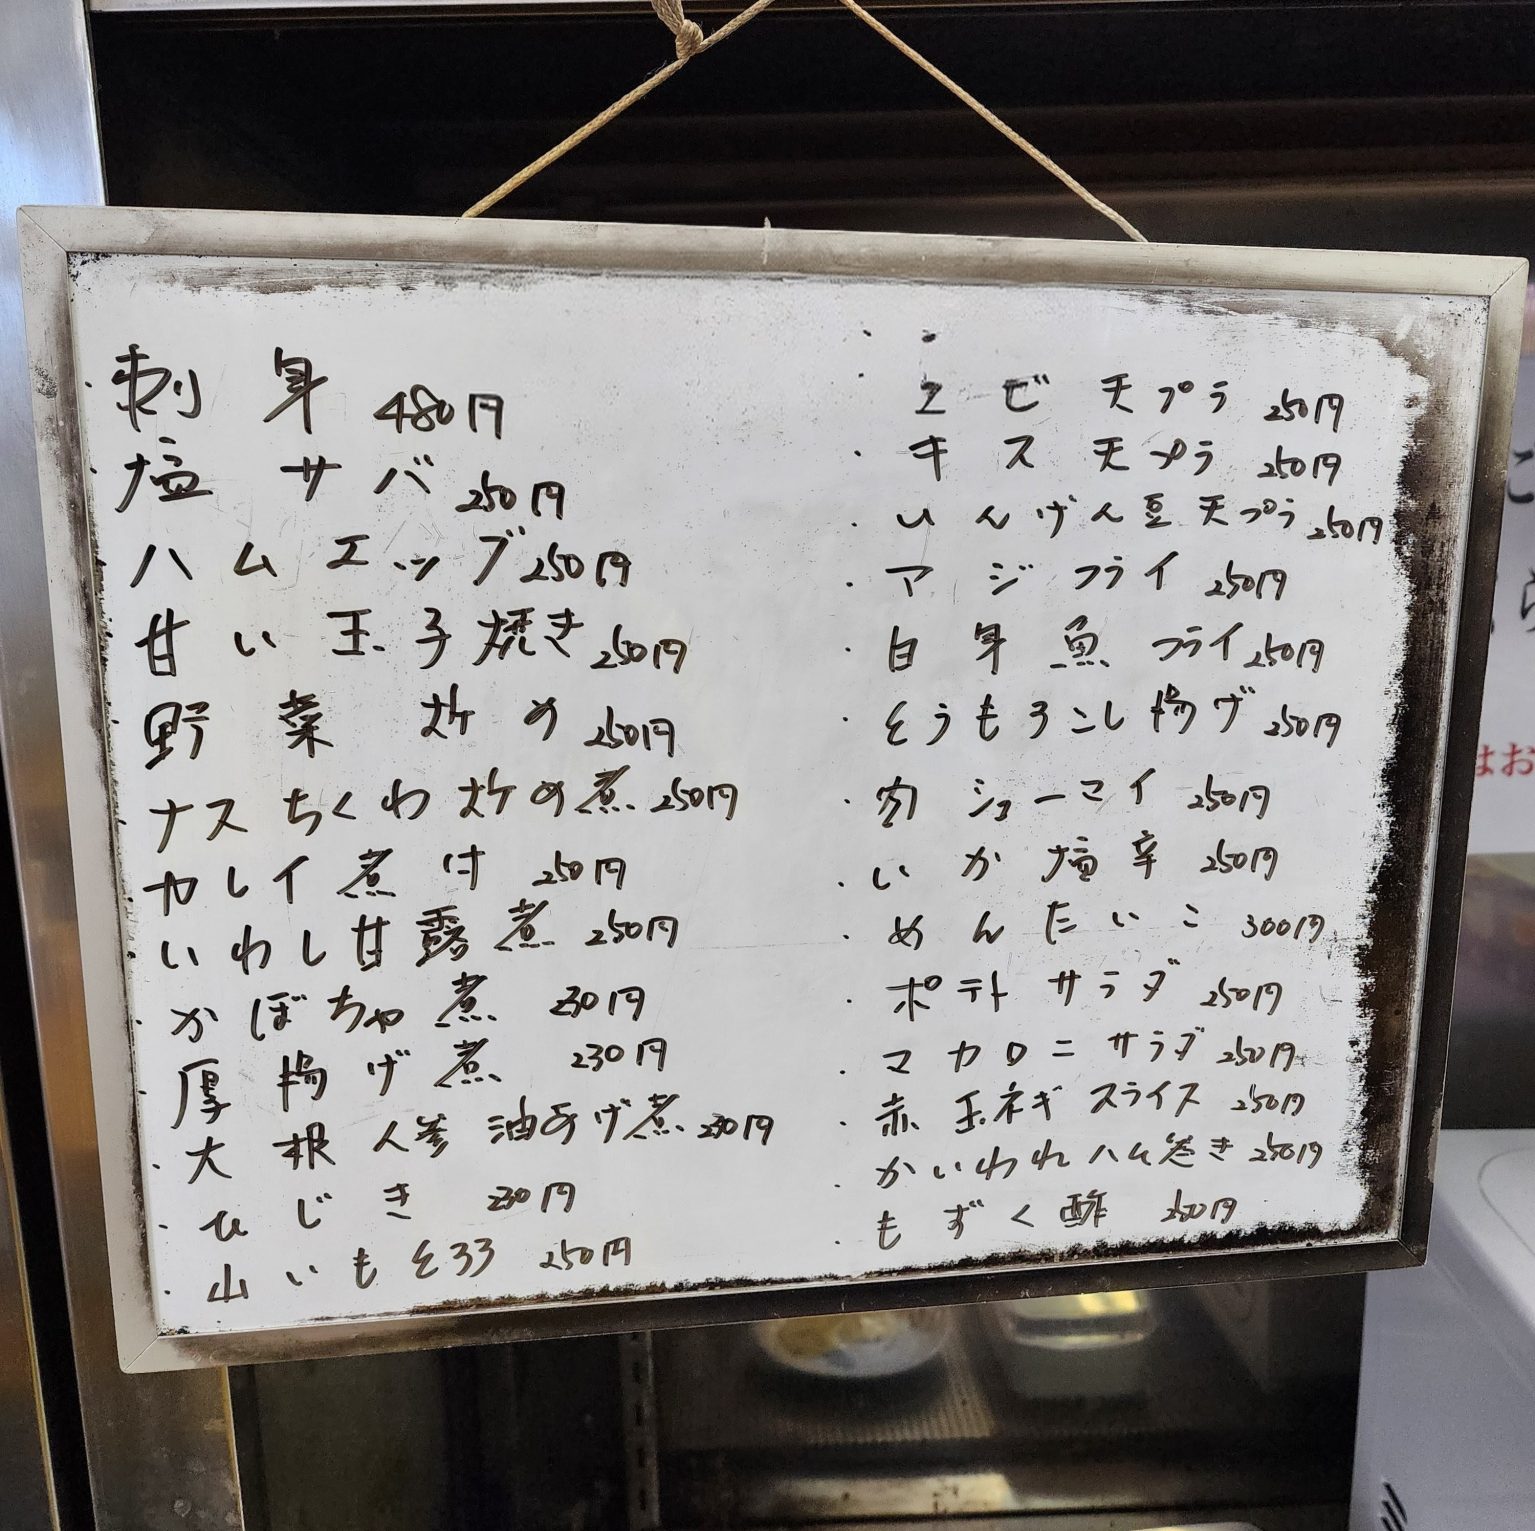 刺身 480円
塩サバ 250円
ハムエッグ 250円
甘い玉子焼き 250円
野菜炒め 250円
ナスちくわ炒め煮 250円
カレイ煮付 250円
いわし甘露煮 250円
かぼちゃ煮 230円
厚揚げ煮 230円
大根人参油あげ煮 230円
ひじき 230円
山いもとろろ 250円
エビ天プラ 250円
キス天プラ 250円
いんげん豆天プラ 250円
アジフライ 250円
白身魚フライ 250円
とうもろこし揚げ 250円
肉シューマイ 250円
いか塩辛 250円
めんたいこ 300円
ポテトサラダ 250円
マカロニサラダ 250円
赤玉ネギスライス 250円
かいわれハム巻き 250円
もずく酢 250円
はお